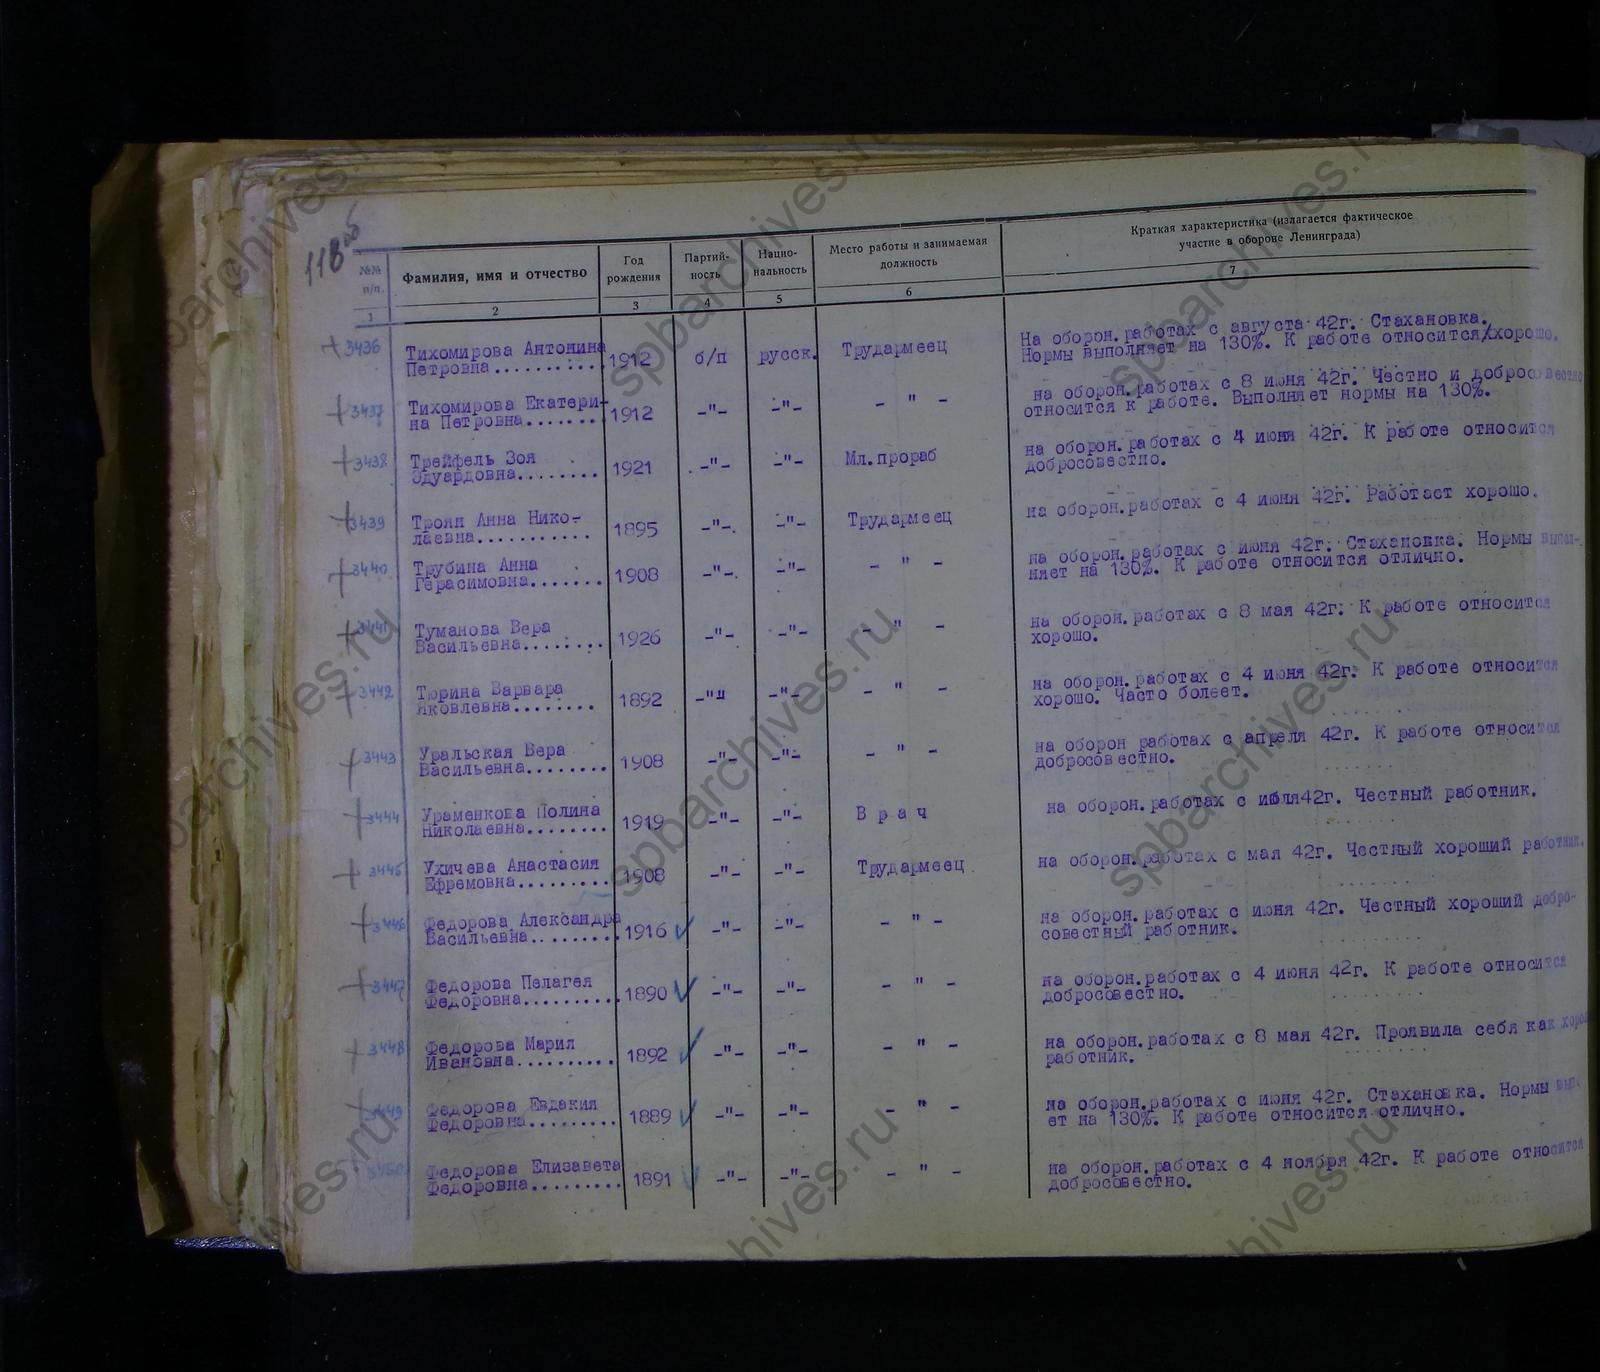 118об
№№ п/п. Фамилия, имя и отчество Год рождения Партий-ность Нацио-нальность Место работы и занимаемая должность Краткая характеристика (излагается фактическое участие в обороне Ленинграда)
1 2 3 4 5 6 7
3436 Тихомирова Антонина 1912 б/п русск. Трудармеец На оборон.работах с августа 42г. Стахановка.
Петровна........... Нормы выполняет на 130%. К работе относится хорошо.
3437 Тихомирова Екатери- 1912 -"- -"- - " - на оборон.работах с 8 июня 42г. Честно и добросовестно
на Петровна........ относится к работе. Выполняет нормы на 130%.
3438 Трейфель Зоя 1921 -"- -"- Мл.прораб на оборон.работах с 4 июня 42г. К работе относится
Эдуардовна........ добросовестно.
3439 Троян Анна Нико- 1895 -"- -"- Трудармеец на оборон.работах с 4 июня 42г. Работает хорошо.
лаевна...........
3440 Трубина Анна 1908 -"- -"- - " - на оборон.работах с июня 42г. Стахановка. Нормы выпол-
Герасимовна....... няет на 130%. К работе относится отлично.
3441 Туманова Вера 1926 -"- -"- - " - на оборон.работах с 8 мая 42г. К работе относится
Васильевна........ хорошо.
3442 Тюрина Варвара 1892 -"- -"- - " - на оборон.работах с 4 июня 42г. К работе относится
Яковлевна........ хорошо. Часто болеет.
3443 Уральская Вера 1908 -"- -"- - " - на оборон работах с апреля 42г. К работе относится
Васильевна........ добросовестно.
3444 Ураменкова Полина 1919 -"- -"- В р а ч на оборон.работах с июля42г. Честный работник.
Николаевна........
3445 Ухичева Анастасия 1908 -"- -"- Трудармеец на оборон.работах с мая 42г. Честный хороший работник.
Ефремовна.........
3446 Федорова Александра 1916 -"- -"- - " - на оборон.работах с июня 42г. Честный хороший добро-
Васильевна......... совестный работник.
3447 Федорова Пелагея 1890 -"- -"- - " - на оборон.работах с 4 июня 42г. К работе относится
Федоровна.......... добросовестно.
3448 Федорова Мария 1892 -"- -"- - " - на оборон.работах с 8 мая 42г. Проявила себя как хорош
Ивановна.......... работник.
3449 Федорова Евдакия 1889 -"- -"- - " - на оборон.работах с июня 42г. Стахановка. Нормы вып.
Федоровна......... ет на 130%. К работе относится отлично.
3450 Федорова Елизавета 1891 -"- -"- - " - на оборон.работах с 4 ноября 42г. К работе относится
Федоровна......... добросовестно.
spbarchives.ru